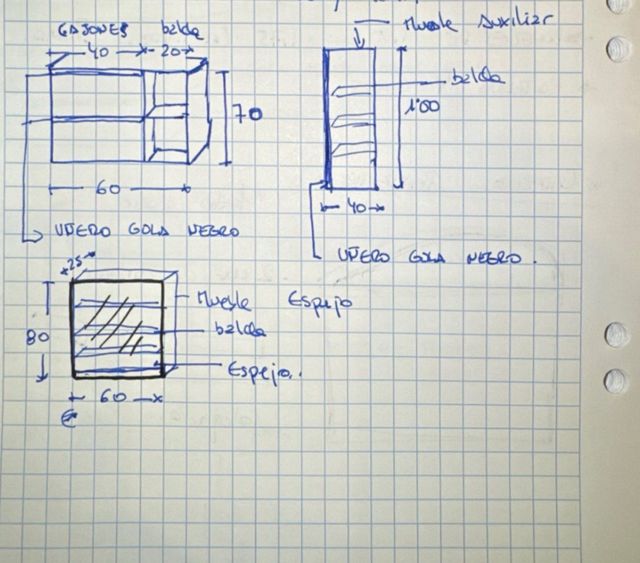 CAJONES balda
40 20
70
60
UÑERO GOLA NEGRO
Mueble Auxiliar
balda
1'00
40
UÑERO GOLA NEGRO.
25
Mueble Espejo
balda
80
Espejo.
60